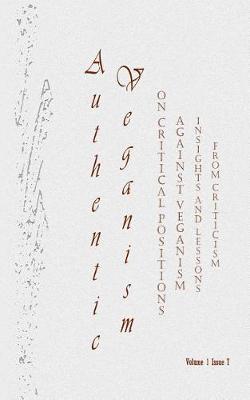 Authentic
Veganism
ON CRITICAL POSITIONS
AGAINST VEGANISM
INSIGHTS AND LESSONS
FROM CRITICISM
Volume 1 Issue T